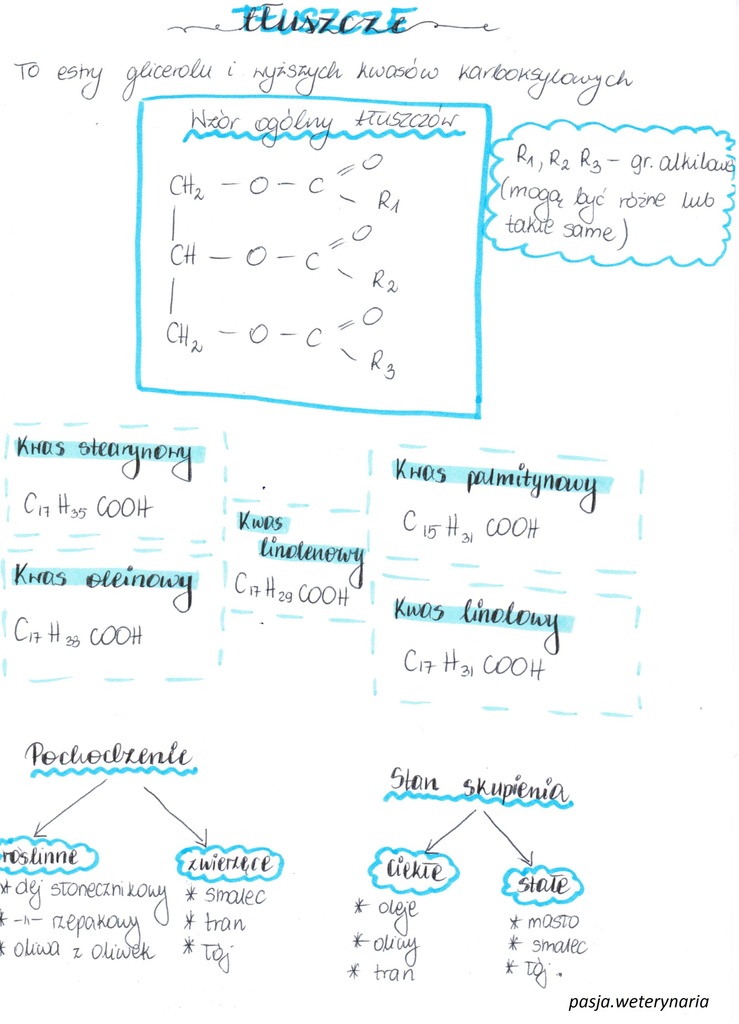 tłuszcze
To estry glicerolu i wyższych kwasów karboksylowych
Wzór ogólny tłuszczów
CH₂ — O — C = O
R₁
CH — O — C = O
R₂
CH₂ — O — C = O
R₃
R₁, R₂ R₃ – gr. alkilowe
(mogą być różne lub
takie same)
Kwas stearynowy
C₁₇ H₃₅ COOH
Kwas oleinowy
C₁₇ H₃₃ COOH
Kwas
linolenowy
C₁₇ H₂₉ COOH
Kwas palmitynowy
C₁₅ H₃₁ COOH
Kwas linolowy
C₁₇ H₃₁ COOH
Pochodzenie
roślinne
* olej słonecznikowy
* -"- rzepakowy
* oliwa z oliwek
zwierzęce
* smalec
* tran
* łój
Stan skupienia
ciekłe
* oleje
* oliwy
* tran
stałe
* masło
* smalec
* łój.
pasja.weterynaria